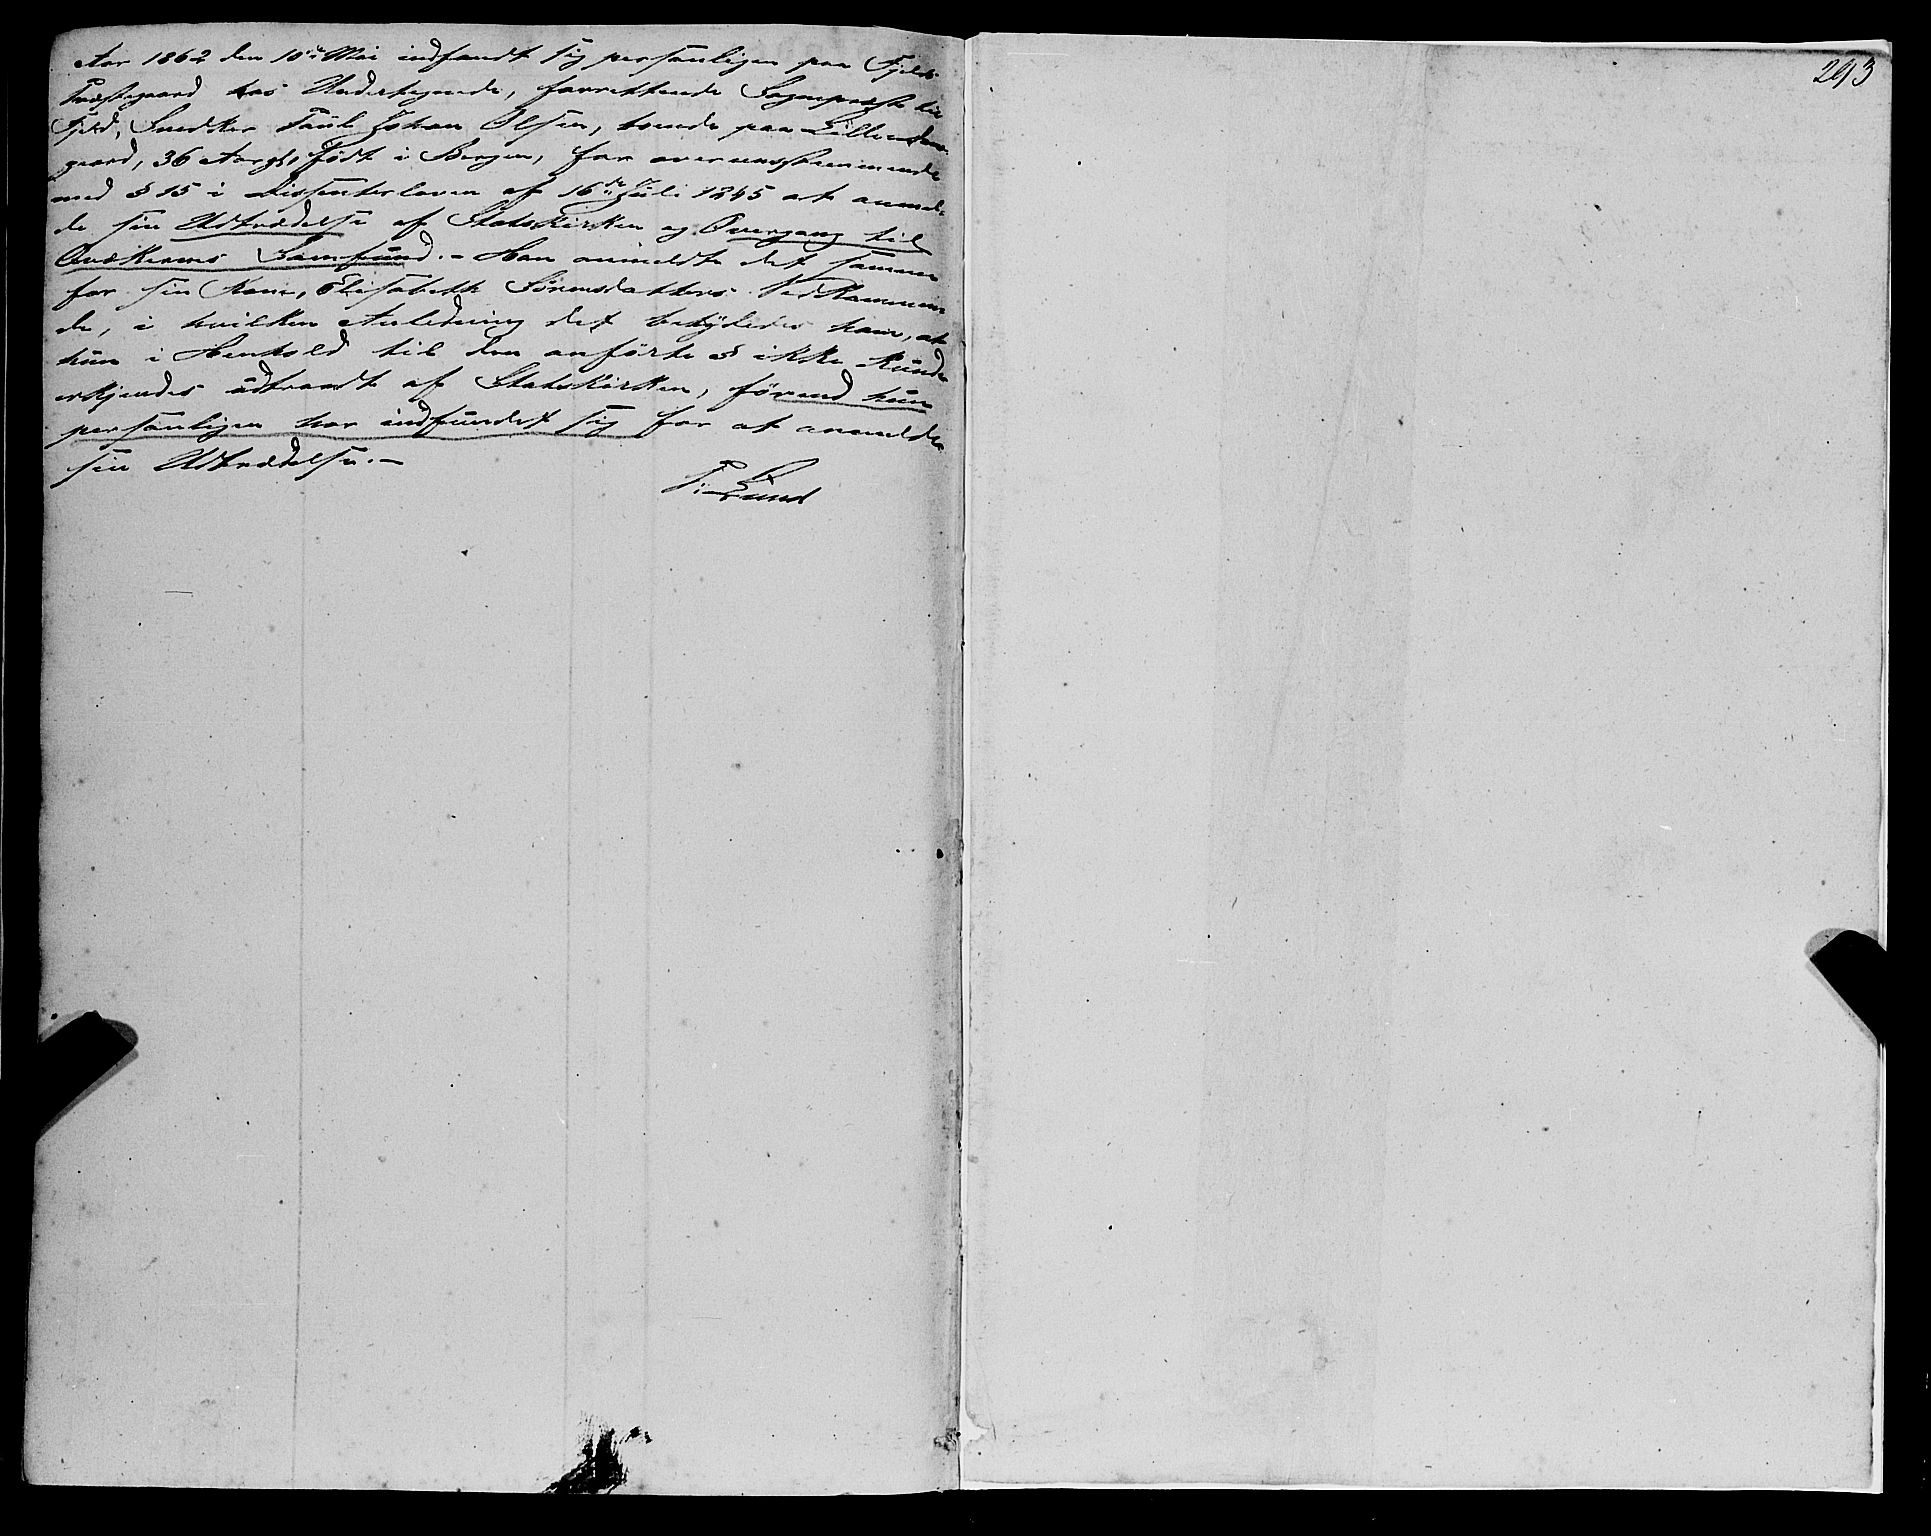 Aar 1862 den 10de Mai indfandt sig personligen paa Fjeld
Præstegaard hos Undertegnede, forrettende Sognepræst til
Fjeld, Snedker Paul Johan Olsen, boende paa
gaard, 36 Aar gl., født i Bergen, for overensstemmende
med § 15 i Dissenterloven af 16de Juli 1845 at anmel-
de sin Udtrædelse af Statskirken og Overgang til
Qvækernes Samfund. - Han anmeldte det samme
for sin Kone, Elisabeth Sørensdatters Vedkommen-
de, i hvilken Anledning det betydedes ham, at
hun i Henhold til den anførte § ikke kunde
erkjendes udtraadt af Statskirken, førend hun
personligen har indfundet sig for at anmelde
sin Udtrædelse. -
Lund
293